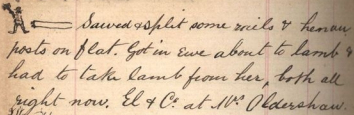 Sawed & split some rails & hewn
posts on flat. Got in Ewe about to lamb &
had to take lamb from her, both all
right now. El & Co at Mrs Oldershaw.